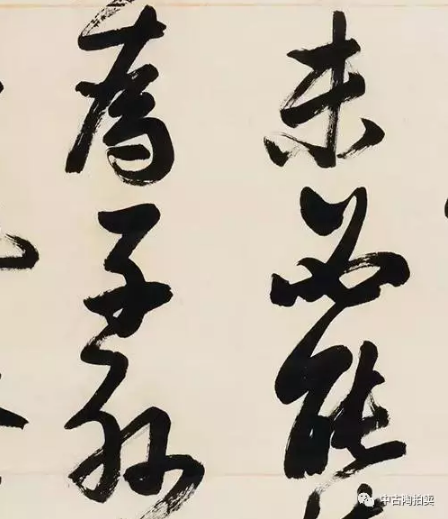 未必能
為子孫
中古陶拍卖